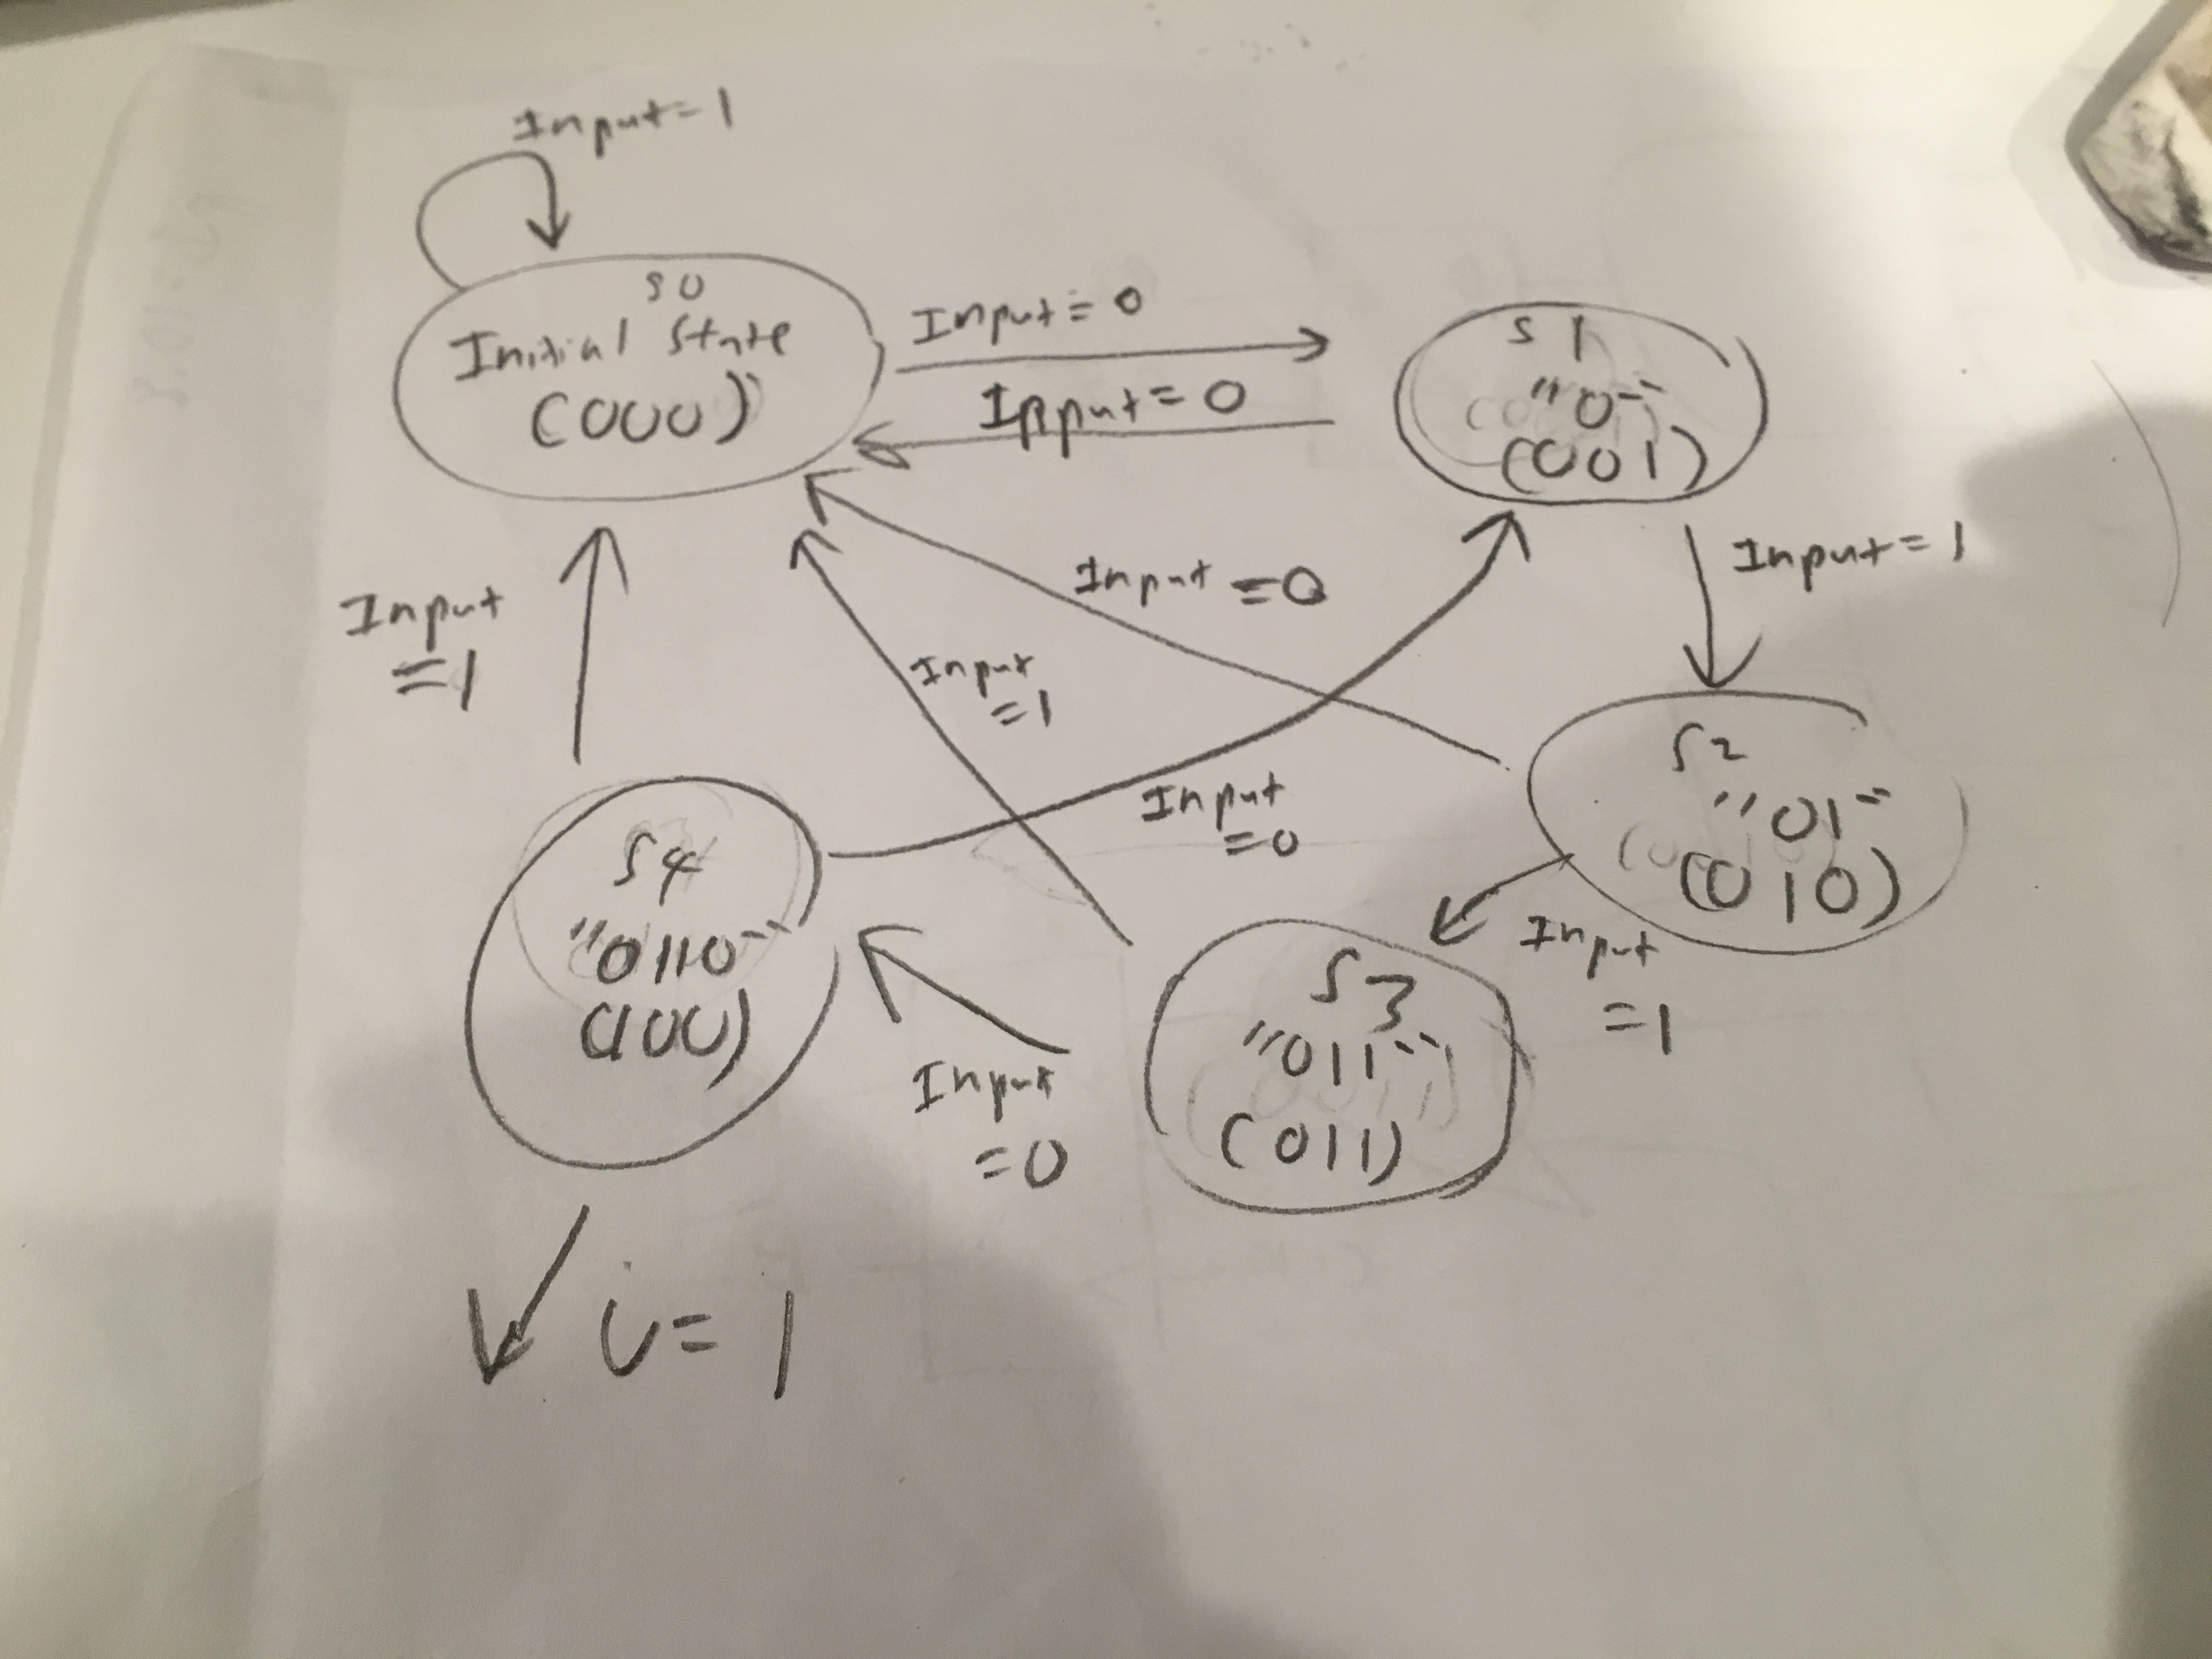 Input=1
S0
Initial State
(000)
Input=0
Input=0
S1
"0"
(001)
Input=1
Input=0
Input
=1
Input
=1
S2
"01"
(010)
Input
=0
S4
"0110"
(100)
Input
=1
S3
"011"
(011)
Input
=0
i=1